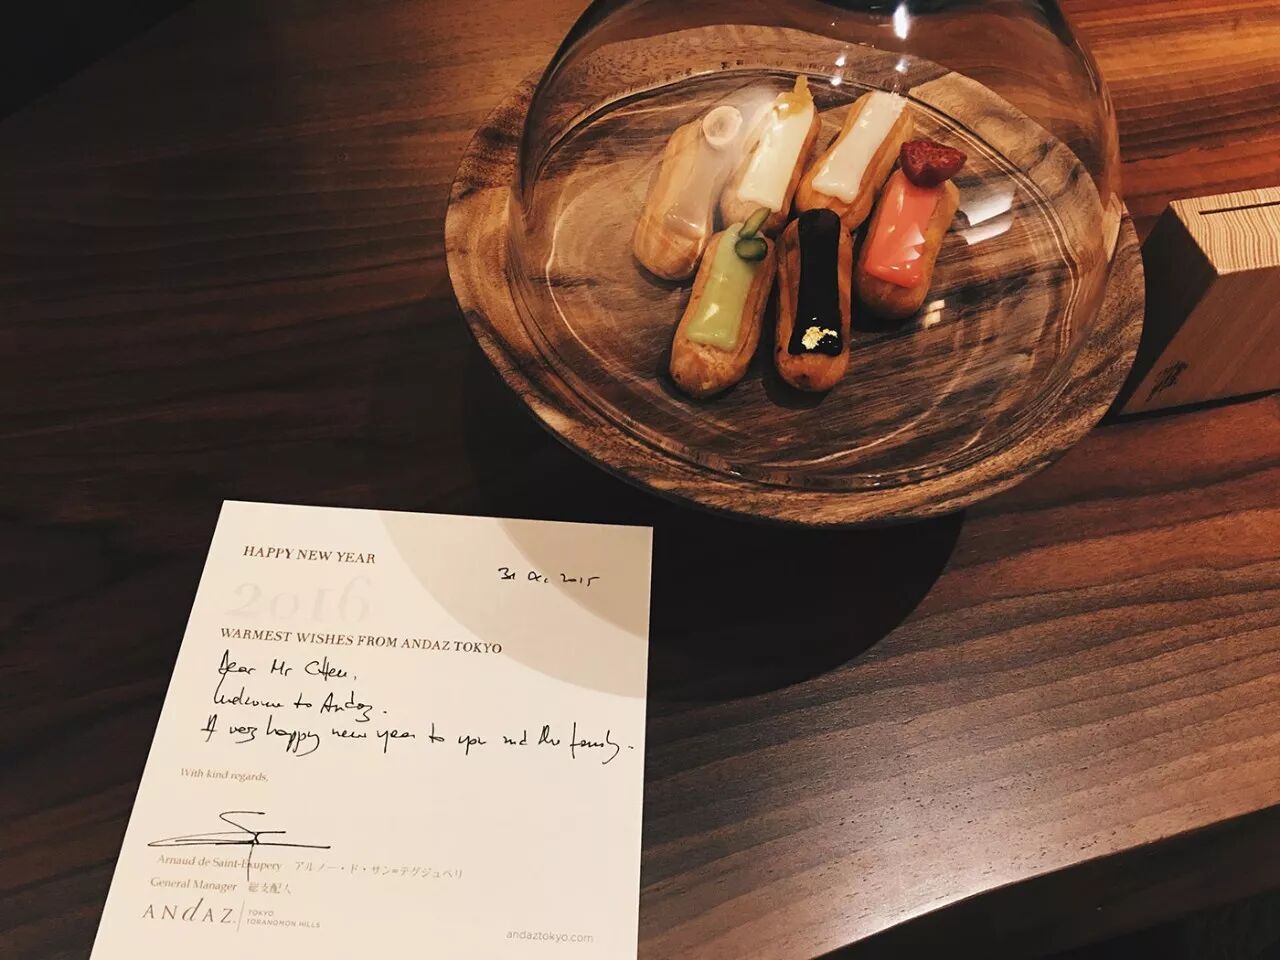 HAPPY NEW YEAR
31 Dec 2015
2016
WARMEST WISHES FROM ANDAZ TOKYO
Dear Mr Chen,
Welcome to Andaz.
A very happy new year to you and the family.
With kind regards,
Arnaud de Saint-Exupery アルノー・ド・サン=テグジュペリ
General Manager 総支配人
ANdAZ. TOKYO
TORANOMON HILLS
andaztokyo.com